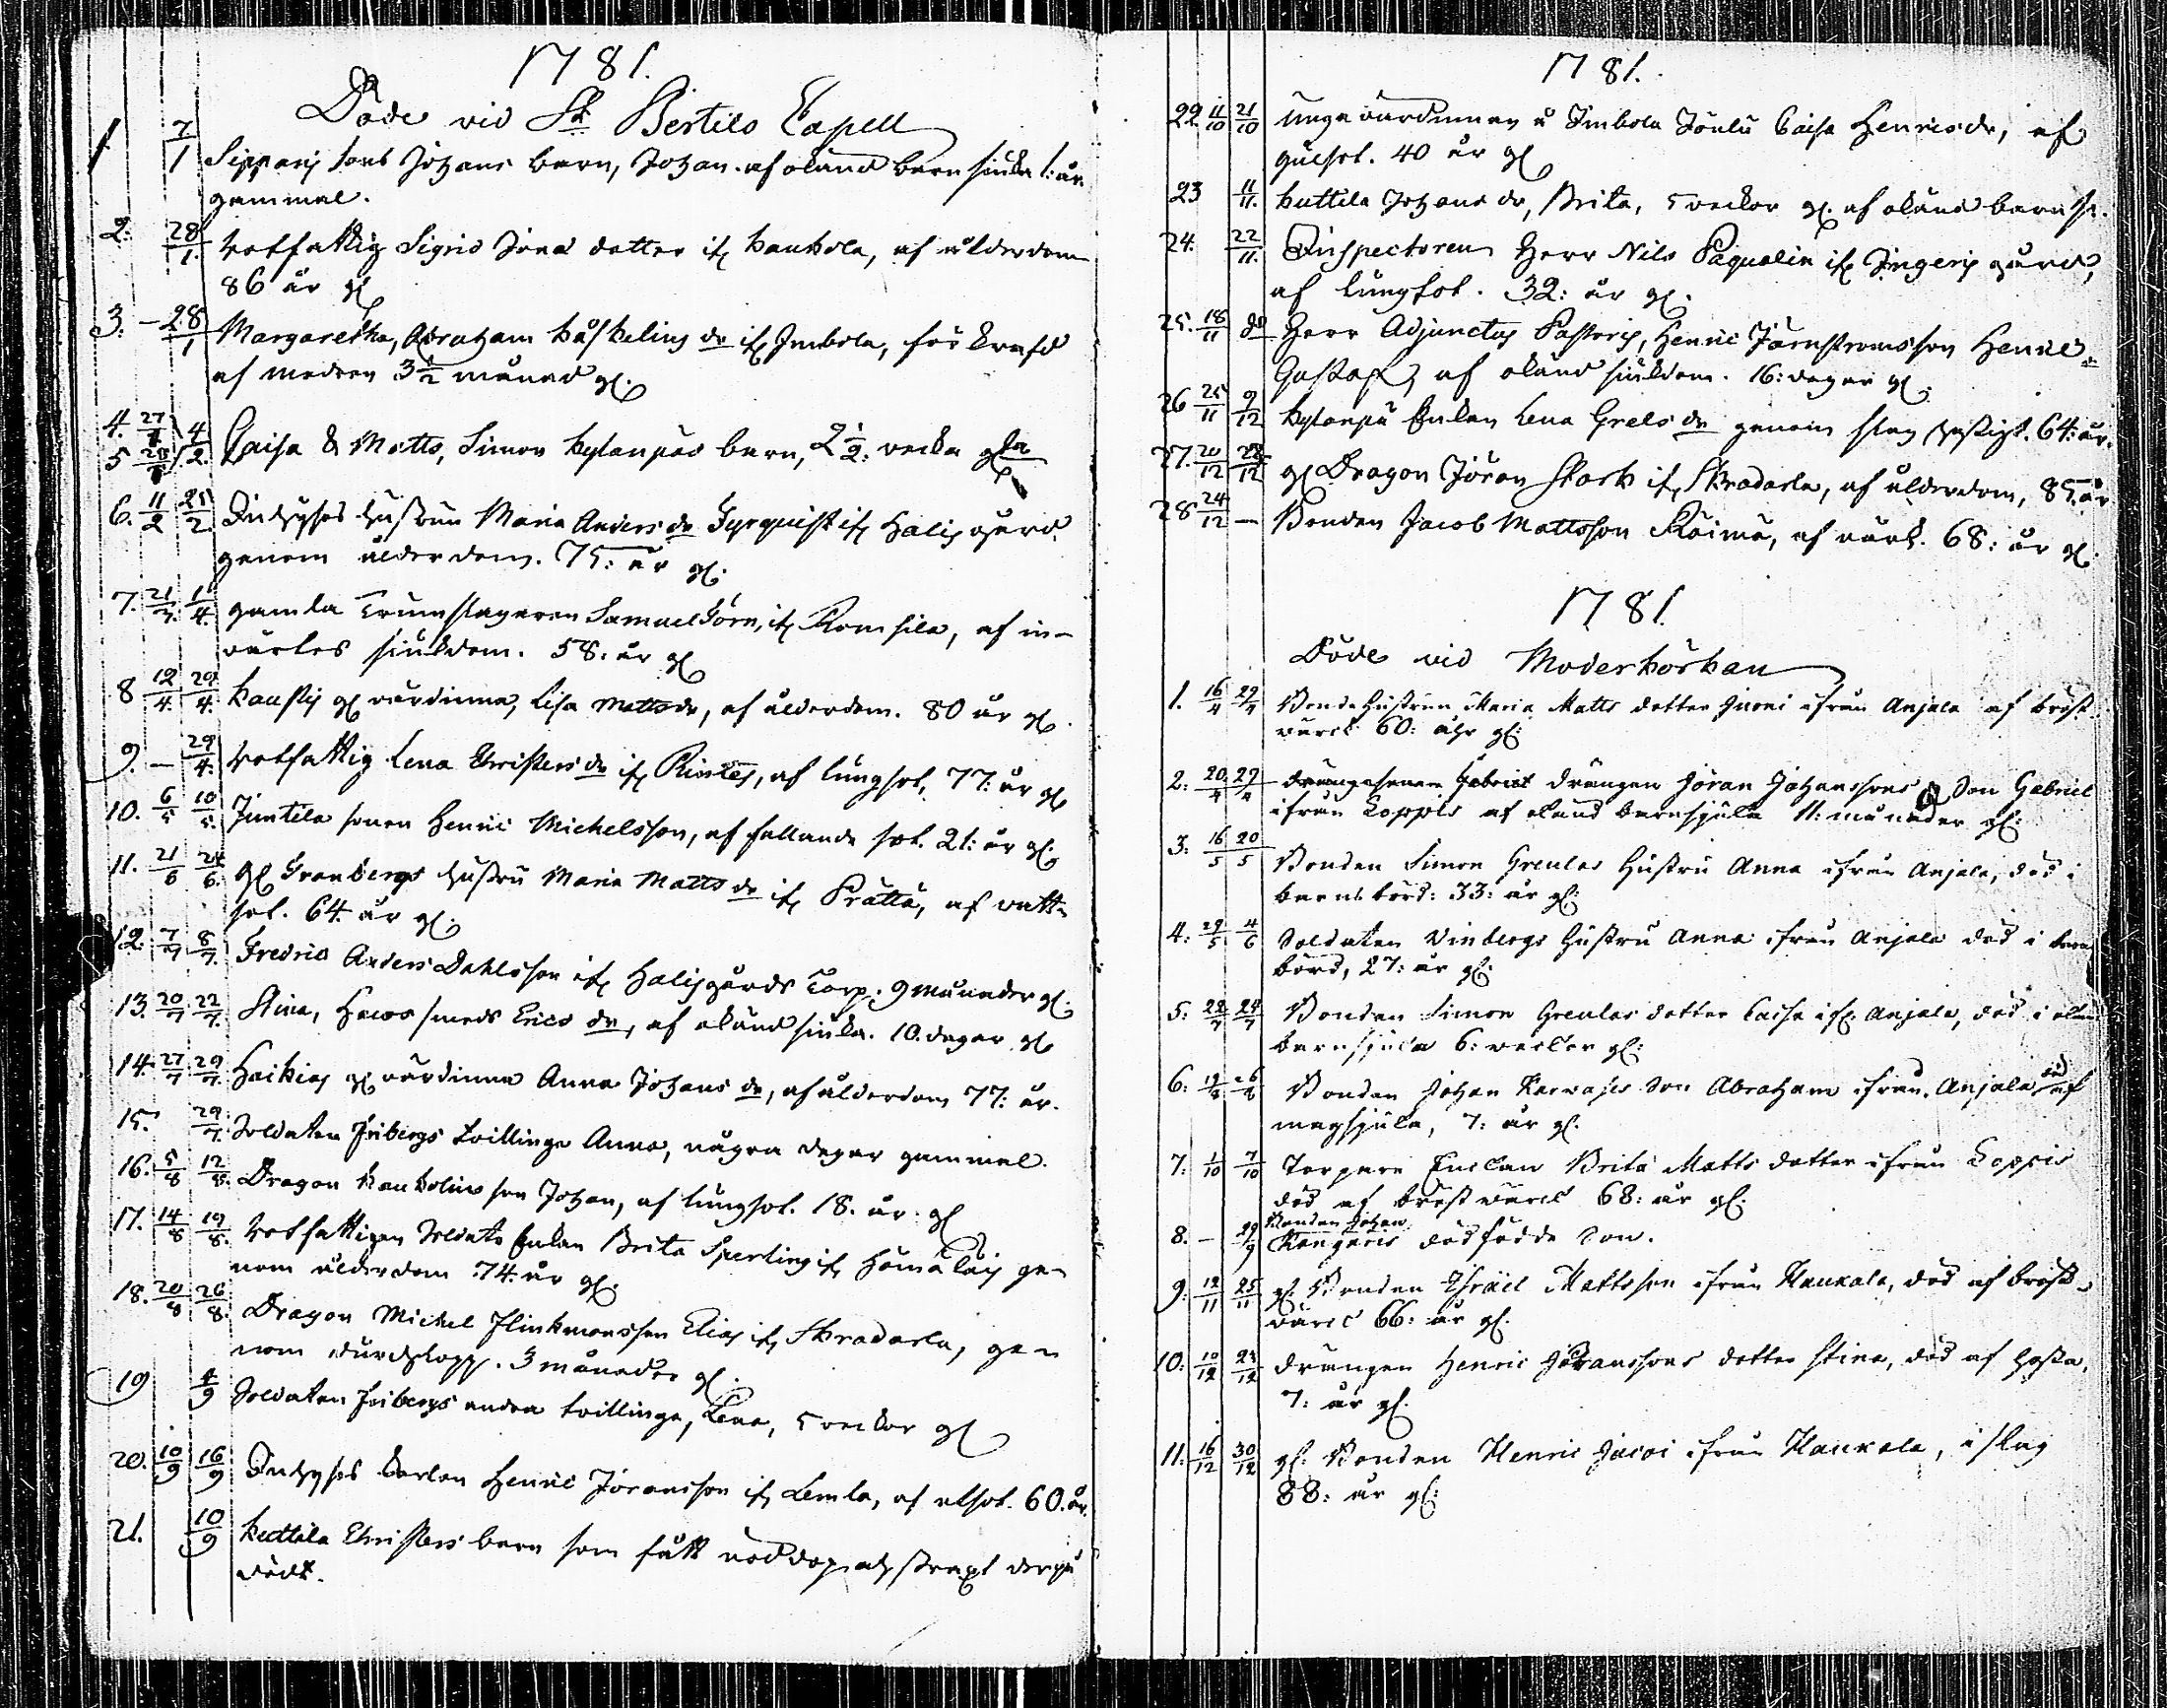 1781.
Döde vid St Bertils Capell
1. 7/1 Sipparis Johans barn, Johan. af okänd barnsiuka 1: år
gammal.
2. 28/1 Rotfattig Sigrid Jöns dotter if: Kaukola, af ålderdom
86 år gl
3. – 28/1 Margaretha, Abraham Håkelins dr if: Imbola, förkrafd
af modren 3½ månad gl.
4. 27/1 4/2
5 Caisa & Matts, Simon Hylanpäs barn, 2½: vecka gla
6. 11/2 25/2 Inhyses hustrun Maria Anders dr Fyrquist if: Halis gård
genom ålderdom. 75: år gl.
7. 21/3 1/4 gamla Trumslagaren Samuel Törn, if: af in-
värtes siukdom. 58: år gl
8 12/4 29/4 gl värdinna, Lisa Mattsdr, af ålderdom. 80 år gl.
9. – 29/4 Rotfattig Lena Christers dr if: af lungsot, 77: år gl
10. 6/5 10/5 Juntila sonen Henric Michelsson, af fallande sot. 21: år gl.
11. 21/6 24/6 gl Granbergs hustru Maria Matts dr if: Prättä, af vatt-
sot. 64 år gl.
12. 7/7 8/7 Fredric Anders Dahlsson if: Halisgårds Torp. 9 månader gl.
13. 20/7 22/7 Stina, smeds Erics dr, af okänd siuka. 10. dagar gl
14. 27/7 29/7 Heikis gl värdinna Anna Johans dr, af ålderdom 77: år.
15. 29/7 Soldaten Fribergs tvillinge Anna, några dagar gammal.
16. 5/8 12/8 Dragon Kaukolins son Johan, af lungsot. 18. år gl
17. 14/8 19/8 Rotfattigen Soldats Enkan Brita Sperling if: ge-
nom ålderdom 74: år gl.
18. 20/8 26/8 Dragon Michel Flinkmansson Elias if: Skradarla, ge-
nom durchlopp. 3 månader gl.
19 4/9 Soldaten Fribergs andra tvillinge, Lena, 5 veckor gl
20. 10/9 16/9 Inhyses karlen Henric Jöransson if: Lemla, af etsot. 60. år.
21. 10/9 Huttila Christers barn som fått nöddop och straxt derpå
dödt.
1781.
22 11/10 21/10 Unga värdinnan å Imbola Jönlä Caisa Henricsdr, af
gulsot. 40 år gl
23 11/11. Huttila Johans dr, Brita, 5 veckor gl. af okänd barnsi.
24. 22/11. Inspectoren Herr Nils Paqualin if: Ingeris gård,
af lungsot. 32: år gl.
25. 18/11 do Herr Adjunctus Pastoris, Henric Järnströms son Henric
Gustaf, af okänd siukdom. 16: dagar gl.
26 25/11 9/12 Hylanpä Enkan Lena Grels dr genom slag hastigt. 64: år.
27. 20/12 gl Dragon Jöran Stark if: Skradarla, af ålderdom, 85. år
28 24/12 – Bonden Jacob Mattsson Roima, af värk. 68: år gl.
1781
Döde vid Moderkörkan
1. 16/4 29/4 Bonde Hustrun Maria Matts dotter ifrån Anjala af bröst
värck 60: åhr gl:
2: 20/4 29/4 drängesonen Gabriel drängen Jöran Johanssons Son Gabriel
ifrån Loppis af okänd barnsjuka 11: månader gl:
3: 16/5 20/5 Bonden Simon Greulas Hustru Anna ifrån Anjala, död i
barnsbörd: 33: år gl:
4: 29/5 4/6 Soldaten Vinbergs Hustru Anna ifrån Anjala död i barns
börd, 27: år gl:
5: 22/7 24/7 Bonden Simon Greulas dotter Caisa if: Anjala, död i okänd
barnsjuka 6: weckor gl:
6: 19/8 26/8 Bonden Johan Karwases Son Abraham ifrån Anjala död af
magsjuka, 7: år gl.
7: 1/10 7/10 Torpare Enckan Brita Matts dotter ifrån Loppis
död af bröstwärck 68: år gl.
8. – 29/9 Bonden Johan
Kangaris dödfödde Son.
9: 12/11 25/11 gl: Bonden Israel Mattsson ifrån Haukala, död af bröst-
wärck 66: år gl.
10: 10/12 23/12 drängen Henric Jöranssons dotter Stina, död af Hosta,
7: år gl.
11: 16/12 30/12 gl: Bonden Henric Jacoi ifrån Haukala, i slag
88: år gl: